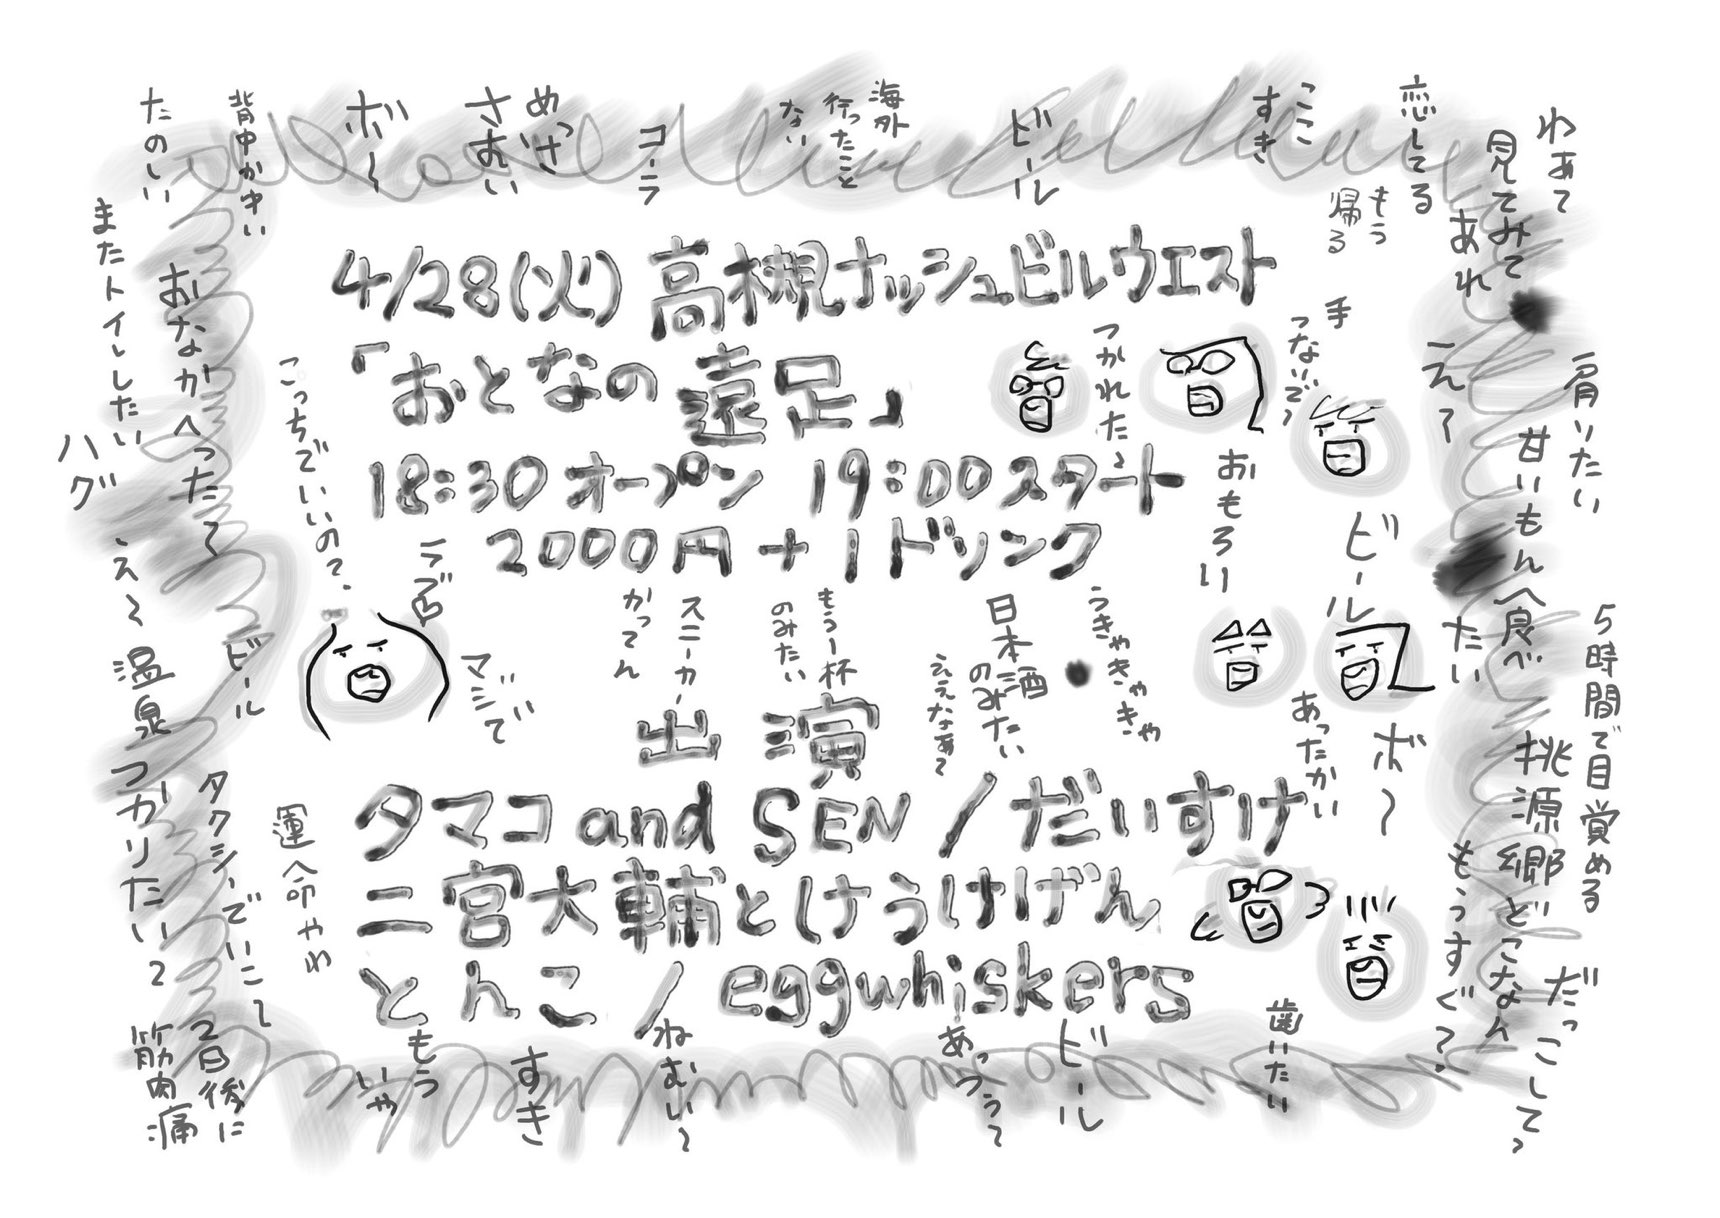 たのしい
背中かゆい
ボ〜
めっさ
さむい
コーラ
海外
行ったこと
ない
ビール
ここ
すき
恋してる
もう
帰る
わぁて
見てみて
あれ
またトイレしたい
おなかへったて
ハグ
え〜
温泉
つかりたい
ビール
タクシーでいこー
2日後に
筋肉痛
4/28(火) 高槻ナッシュビルウエスト
「おとなの遠足」
18:30 オープン 19:00スタート
2000円+1ドリンク
こっちでいいの?
マジで
運命やわ
スニーカー
かってん
もう一杯
のみたい
日本酒
のみたい
ええなぁ〜
うきゃきゃきゃ
つかれた
手
つないで
おもろい
え〜
ビール
肩いたい
甘いもん食べ
たい
あったかい
ボ〜
5時間で目覚める
桃源郷どこなん
もうすぐ?
だっこして
出演
タマコ and SEN / だいすけ
二宮大輔とけうけげん
とんこ / eggwhiskers
もう
いや
すき
ねむい〜
あっつぅ〜
ビール
歯いたい